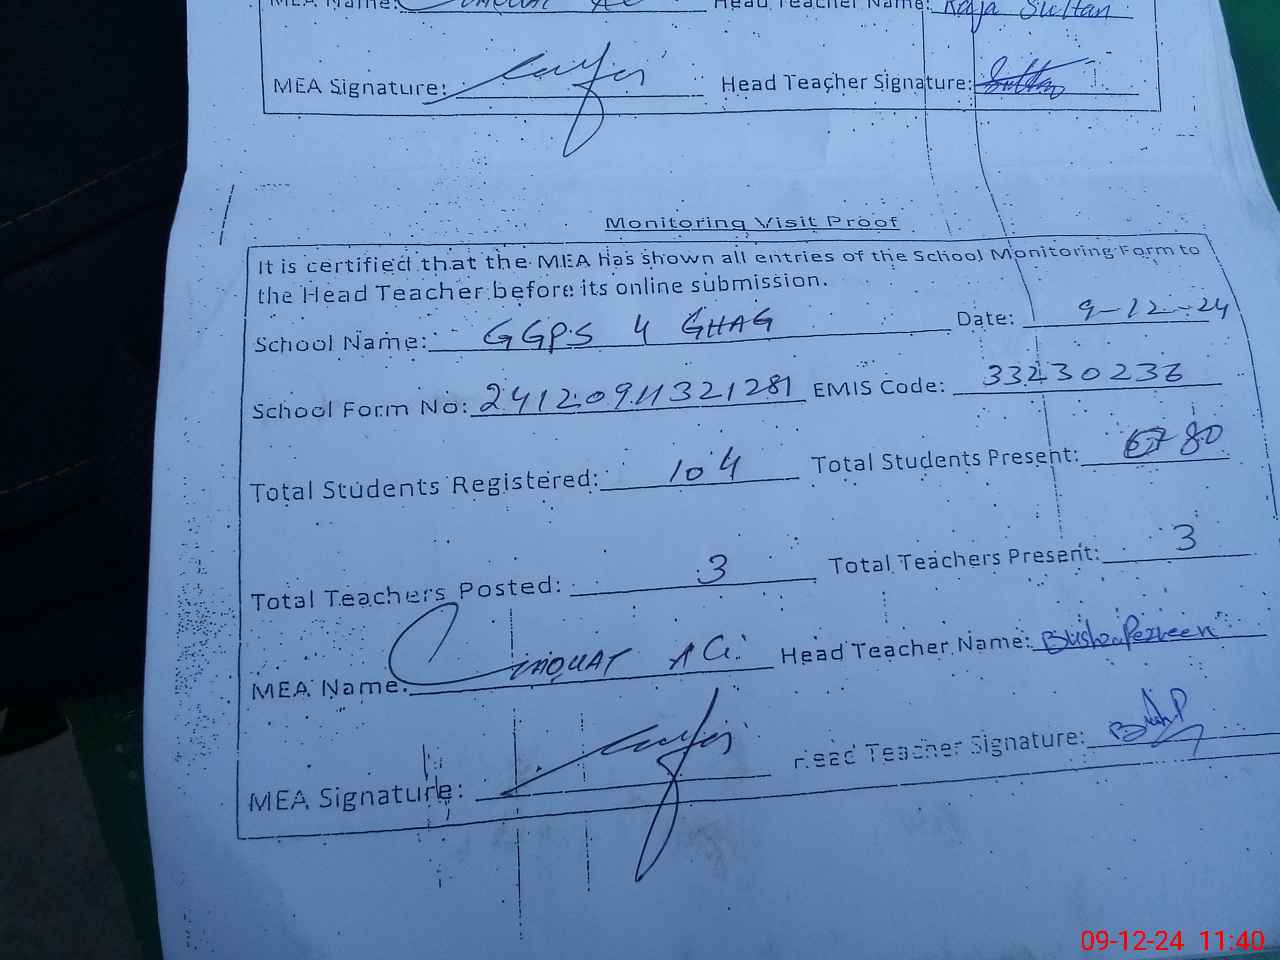 MEA Name: Head Teacher Name: Raja Sultan
MEA Signature: Head Teacher Signature: Sultan
Monitoring Visit Proof
It is certified that the MEA has shown all entries of the School Monitoring Form to
the Head Teacher before its online submission.
School Name: GGPS 4 GHAG Date: 9-12-24
School Form No: 24120911321281 EMIS Code: 33230236
Total Students Registered: 104 Total Students Present: 80
Total Teachers Posted: 3 Total Teachers Present: 3
MEA Name: Head Teacher Name: Bushra Perveen
MEA Signature: Head Teacher Signature:
09-12-24 11:40